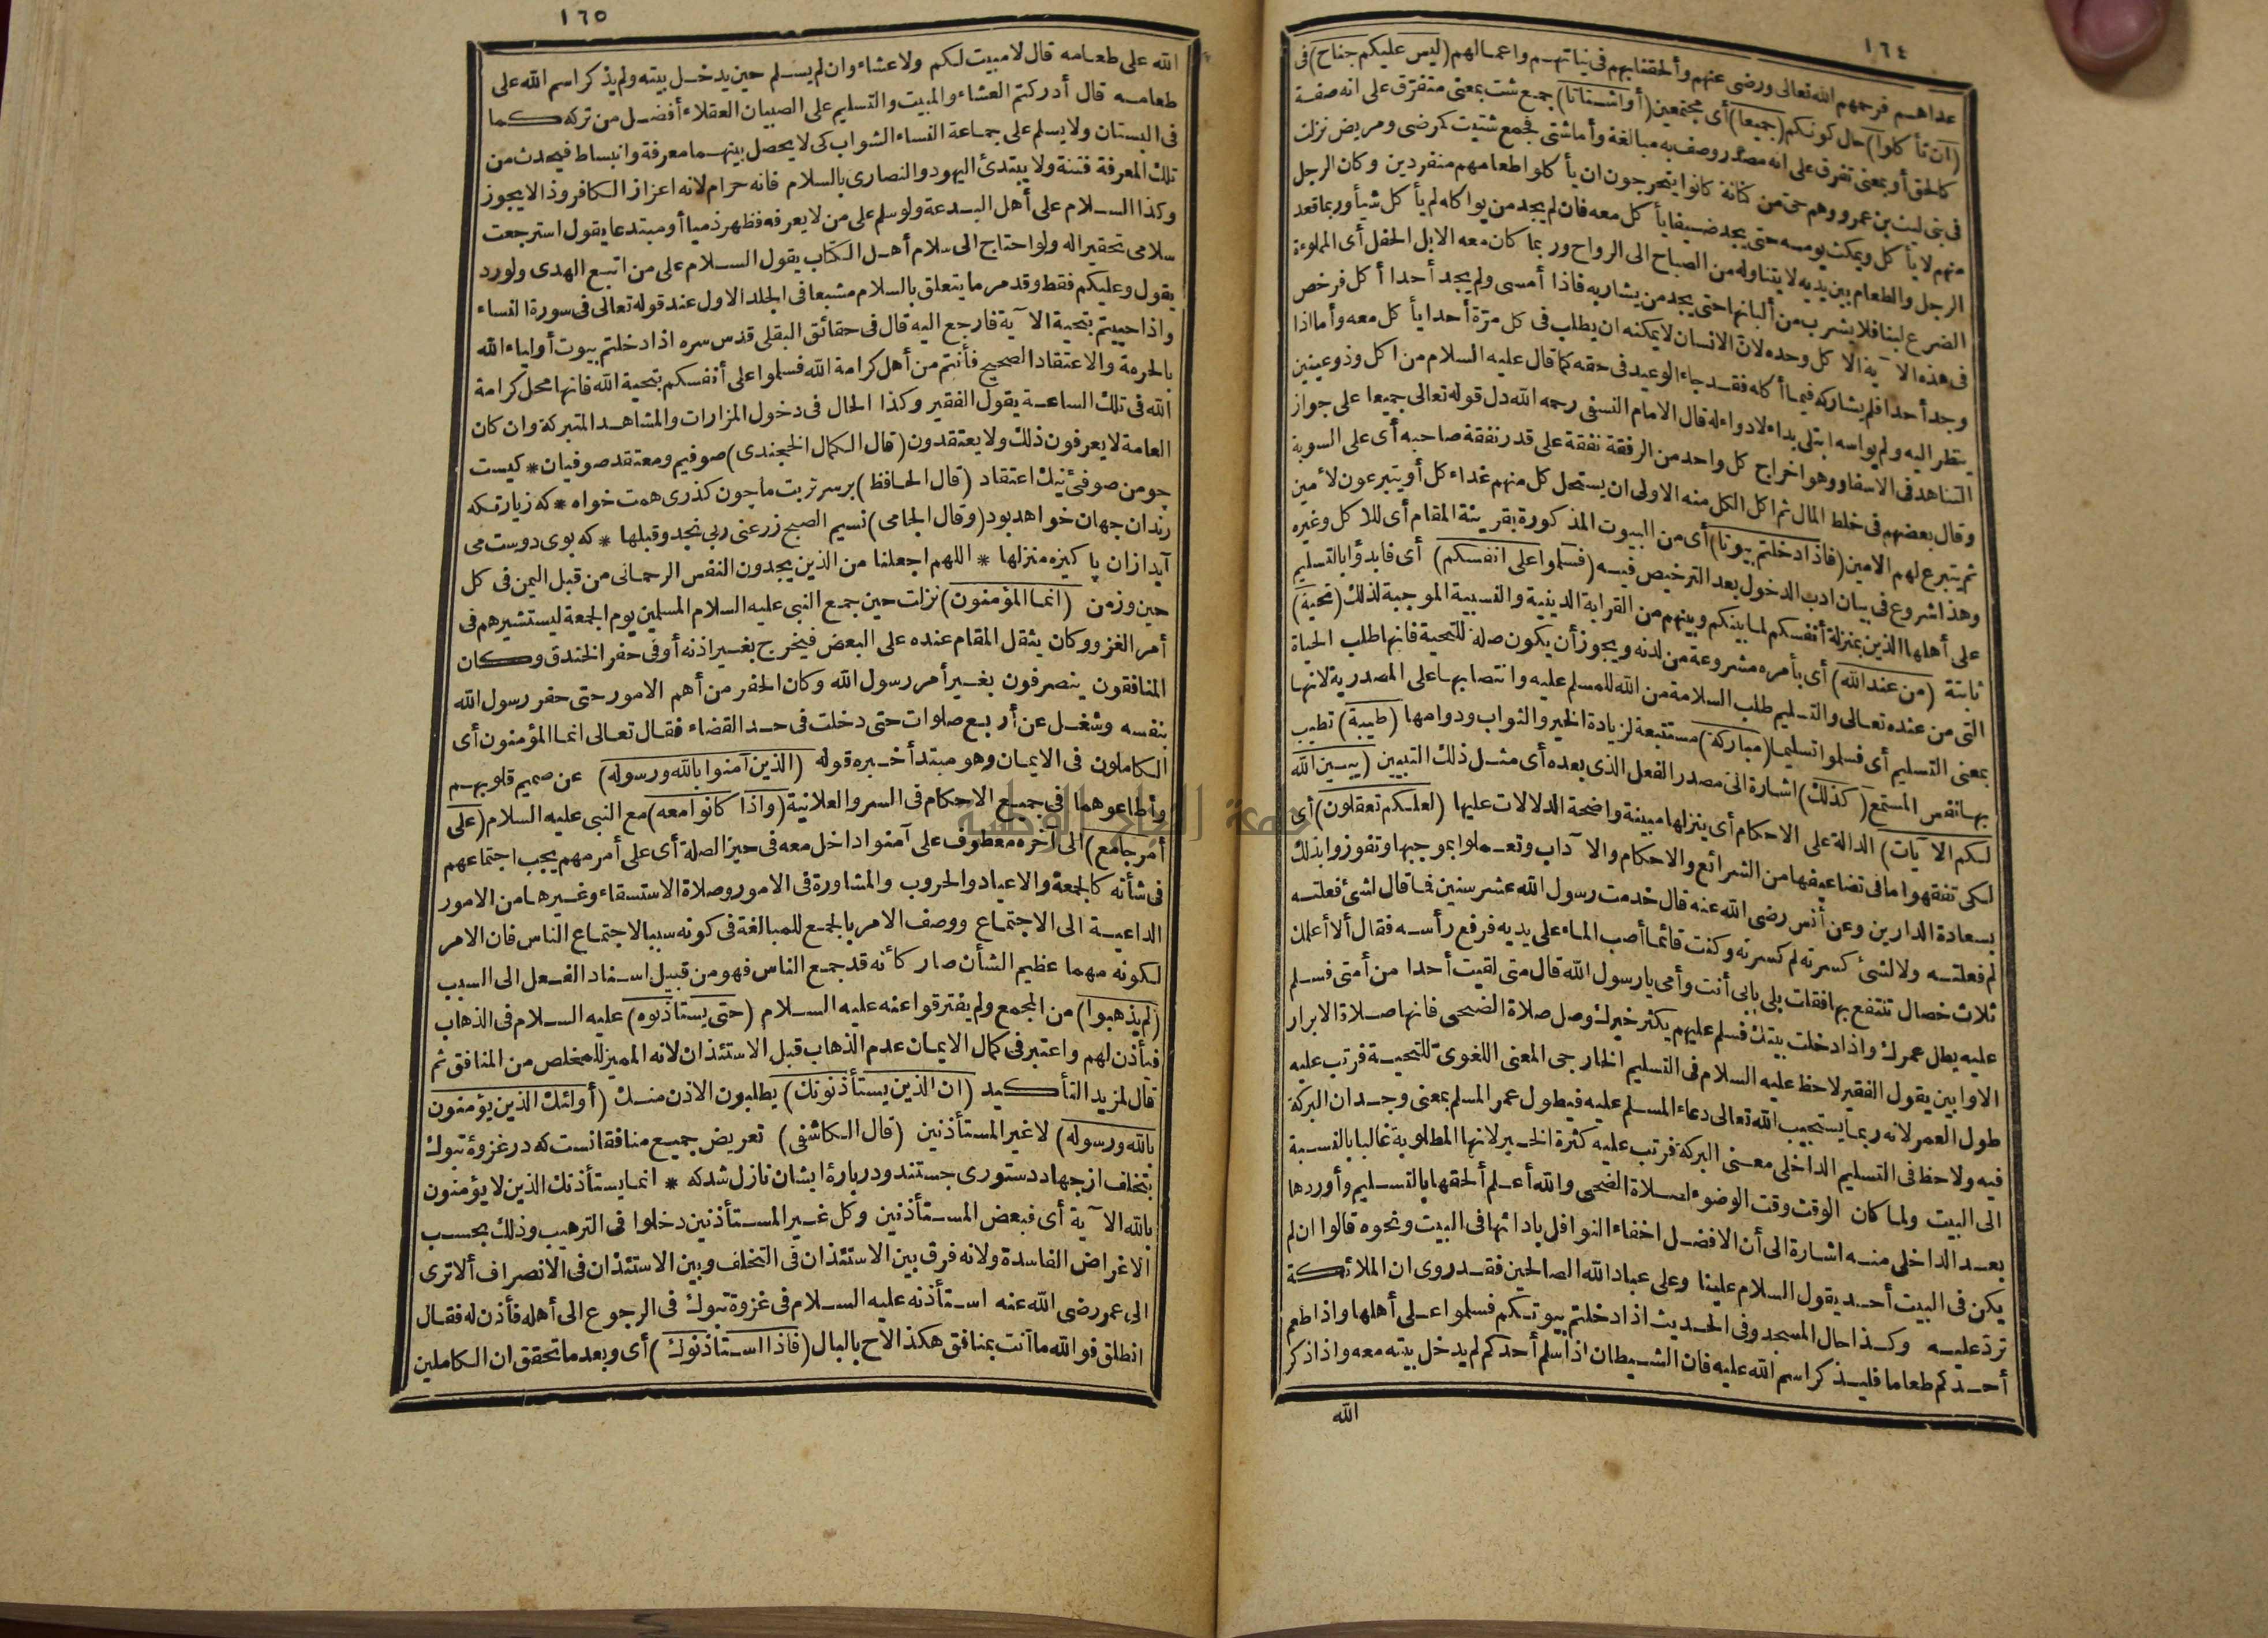 ١٦٤
عداهم فرحمهم الله تعالى ورضى عنهم وألحقنا بهم فى نياتهم واعمالهم (ليس عليكم جناح) فى
(ان تأكلوا) حال كونكم (جميعا) أى مجتمعين (أو اشتاتا) جمع شت بمعنى متفرق على انه صفة
كالحق أو بمعنى تفرق على انه مصدر وصف به مبالغة وأما شتى فجمع شتيت كمرضى ومريض نزلت
فى بنى ليث بن عمرو وهم حى من كنانة كانوا يتحرجون ان يأكلوا طعامهم منفردين وكان الرجل
منهم لا يأكل ويمكث يومه حتى يجد ضيفا يأكل معه فان لم يجد من يواكله لم يأكل شيأ وربما قعد
الرجل والطعام بين يديه لا يتناوله من الصباح الى الرواح وربما كان معه الابل الحفل أى المملوءة
الضرع لبنا فلا يشرب من ألبانها حتى يجد من يشاربه فاذا أمسى ولم يجد أحدا أكل فرخص
فى هذه الآية الاكل وحده لان الانسان لا يمكنه ان يطلب فى كل مرة أحدا يأكل معه وأما اذا
وجد أحدا فلم يشاركه فيما أكله فقد جاء الوعيد فى حقه كما قال عليه السلام من اكل وذو عينين
ينظر اليه ولم يواسه ابتلى بداء لا دواء له قال الامام النسفى رحمه الله دل قوله تعالى جميعا على جواز
التناهد فى الاسفار وهو اخراج كل واحد من الرفقة نفقة على قدر نفقة صاحبه أى على السوية
وقال بعضهم فى خلط المال ثم اكل الكل منه الاولى ان يستحل كل منهم غداء كل أو يتبرعون لأمين
ثم يتبرع لهم الامين (فاذا دخلتم بيوتا) أى من البيوت المذكورة بقرينة المقام أى للاكل وغيره
وهذا شروع فى بيان ادب الدخول بعد الترخيص فيه (فسلموا على انفسكم) أى فابدؤا بالتسليم
على أهلها الذين بمنزلة أنفسكم لما بينكم وبينهم من القرابة الدينية والنسبية الموجبة لذلك (تحية)
ثابتة (من عند الله) أى بأمره مشروعة من لدنه ويجوز أن يكون صلة للتحية فانها طلب الحياة
التى من عنده تعالى والتسليم طلب السلامة من الله للمسلم عليه وانتصابها على المصدرية لانها
بمعنى التسليم أى فسلموا تسليما (مباركة) مستتبعة لزيادة الخير والثواب ودوامها (طيبة) تطيب
بها نفس المستمع (كذلك) اشارة الى مصدر الفعل الذى بعده أى مثل ذلك التبيين (يبين الله
لكم الآيات) الدالة على الاحكام أى ينزلها مبينة واضحة الدلالات عليها (لعلكم تعقلون) أى
لكى تفقهوا ما فى تضاعيفها من الشرائع والاحكام والآداب وتعملوا بموجبها وتفوزوا بذلك
بسعادة الدارين وعن أنس رضى الله عنه قال خدمت رسول الله عشر سنين فما قال لشئ فعلته
لم فعلته ولا لشئ كسرته لم كسرته وكنت قائما أصب الماء على يديه فرفع رأسه فقال ألا أعلمك
ثلاث خصال تنتفع بها فقلت بلى بابى أنت وأمى يا رسول الله قال متى لقيت أحدا من أمتى فسلم
عليه يطل عمرك واذا دخلت بيتك فسلم عليهم يكثر خيرك وصل صلاة الضحى فانها صلاة الابرار
الاوابين يقول الفقير لاحظ عليه السلام فى التسليم الخارجى المعنى اللغوى للتحية فرتب عليه
طول العمر لانه ربما يستجيب الله تعالى دعاء المسلم عليه فيطول عمر المسلم بمعنى وجدان البركة
فيه ولاحظ فى التسليم الداخلى معنى البركة فرتب عليه كثرة الخير لانها المطلوبة غالبا بالنسبة
الى البيت ولما كان الوقت وقت الوضوء لصلاة الضحى والله أعلم ألحقها بالتسليم وأوردها
بعد الداخلى منه اشارة الى أن الافضل اخفاء النوافل بادائها فى البيت ونحوه قالوا ان لم
يكن فى البيت أحد يقول السلام علينا وعلى عباد الله الصالحين فقد روى ان الملائكة
ترد عليه وكذا حال المسجد وفى الحديث اذا دخلتم بيوتكم فسلموا على أهلها واذا طعم
أحدكم طعاما فليذكر اسم الله عليه فان الشيطان اذا سلم أحدكم لم يدخل بيته معه واذا ذكر
الله
١٦٥
الله على طعامه قال لا مبيت لكم ولا عشاء وان لم يسلم حين يدخل بيته ولم يذكر اسم الله على
طعامه قال أدركتم العشاء والمبيت والتسليم على الصبيان العقلاء أفضل من تركه كما
فى البستان ولا يسلم على جماعة النساء الشواب كى لا يحصل بينهما معرفة وانبساط فيحدث من
تلك المعرفة فتنة ولا يبتدئ اليهود والنصارى بالسلام فانه حرام لانه اعزاز الكافر وذا لا يجوز
وكذا السلام على أهل البدعة ولو سلم على من لا يعرفه فظهر ذميا أو مبتدعا يقول استرجعت
سلامى تحقيرا له ولو احتاج الى سلام أهل الكتاب يقول السلام على من اتبع الهدى ولو رد
يقول وعليكم فقط وقد مر ما يتعلق بالسلام مشبعا فى الجلد الاول عند قوله تعالى فى سورة النساء
واذا حييتم بتحية الآية فارجع اليه قال فى حقائق البقلى قدس سره اذا دخلتم بيوت أولياء الله
بالحرمة والاعتقاد الصحيح فأنتم من أهل كرامة الله فسلموا على أنفسكم بتحية الله فانها محل كرامة
الله فى تلك الساعة يقول الفقير وكذا الحال فى دخول المزارات والمشاهد المتبركة وان كان
العامة لا يعرفون ذلك ولا يعتقدون (قال الكمال الخجندى) صوفيم ومعتقد صوفيان * كيست
چو من صوفئ نيك اعتقاد (قال الحافظ) بر سر تربت ما چون كذرى همت خواه * كه زيارتكه
رندان جهان خواهد بود (وقال الجامى) نسيم الصبح زر عنى ربى نجد وقبلها * كه بوى دوست مى
آيد ازان پاكيزه منزلها * اللهم اجعلنا من الذين يجدون النفس الرحمانى من قبل اليمن فى كل
حين وزمن (انما المؤمنون) نزلت حين جمع النبى عليه السلام المسلمين يوم الجمعة ليستشيرهم فى
أمر الغزو وكان يثقل المقام عنده على البعض فيخرج بغير اذنه أو فى حفر الخندق وكان
المنافقون ينصرفون بغير أمر رسول الله وكان الحفر من أهم الامور حتى حفر رسول الله
بنفسه وشغل عن أربع صلوات حتى دخلت فى حد القضاء فقال تعالى انما المؤمنون أى
الكاملون فى الايمان وهو مبتدأ خبره قوله (الذين آمنوا بالله ورسوله) عن صميم قلوبهم
وأطاعوهما فى جميع الاحكام فى السر والعلانية (واذا كانوا معه) مع النبى عليه السلام (على
أمر جامع) الى آخره معطوف على آمنوا داخل معه فى حيز الصلة أى على أمر مهم يجب اجتماعهم
فى شأنه كالجمعة والاعياد والحروب والمشاورة فى الامور وصلاة الاستسقاء وغيرها من الامور
الداعية الى الاجتماع ووصف الامر بالجمع للمبالغة فى كونه سببا لاجتماع الناس فان الامر
لكونه مهما عظيم الشأن صار كأنه قد جمع الناس فهو من قبيل اسناد الفعل الى السبب
(لم يذهبوا) من المجمع ولم يفترقوا عنه عليه السلام (حتى يستأذنوه) عليه السلام فى الذهاب
فيأذن لهم واعتبر فى كمال الايمان عدم الذهاب قبل الاستئذان لانه المميز للمخلص من المنافق ثم
قال لمزيد التأكيد (ان الذين يستأذنونك) يطلبون الاذن منك (أولئك الذين يؤمنون
بالله ورسوله) لا غير المستأذنين (قال الكاشفى) تعريض جميع منافقانست كه در غزوۀ تبوك
بتخلف از جهاد دستورى جستند ودر بارۀ ايشان نازل شد كه * انما يستأذنك الذين لا يؤمنون
بالله الآية أى فبعض المستأذنين وكل غير المستأذنين دخلوا فى الترهيب وذلك بحسب
الاغراض الفاسدة ولانه فرق بين الاستئذان فى التخلف وبين الاستئذان فى الانصراف ألا ترى
الى عمر رضى الله عنه استأذنه عليه السلام فى غزوة تبوك فى الرجوع الى أهله فأذن له فقال
انطلق فو الله ما أنت بمنافق هكذا لاح بالبال (فاذا استأذنوك) أى وبعد ما تحقق ان الكاملين
جامعة النجاح الوطنية